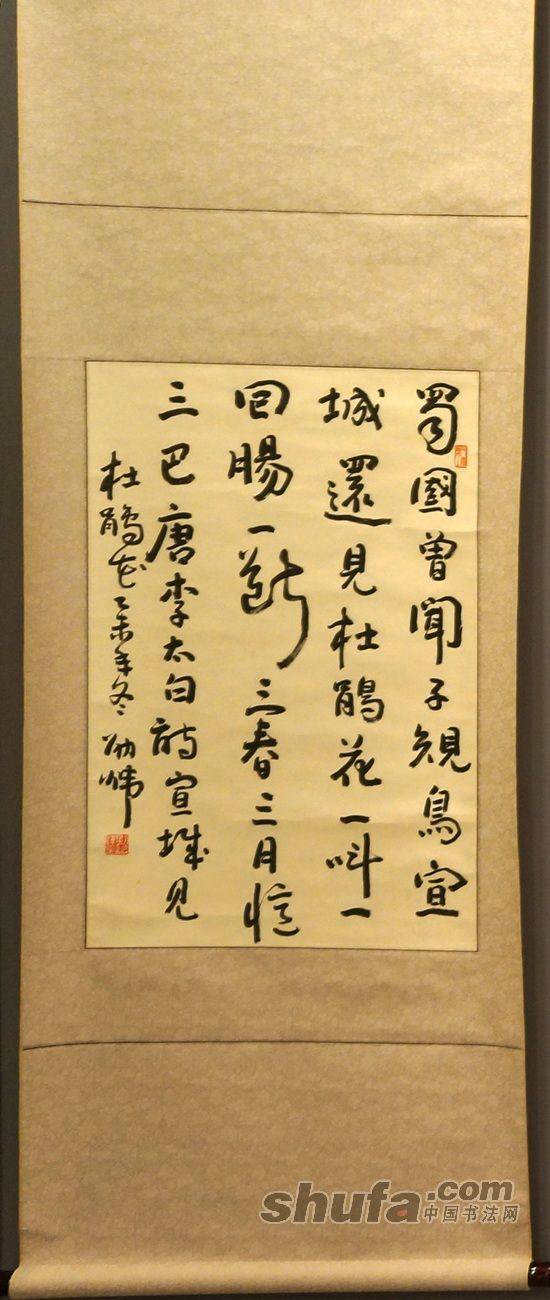 蜀國曾聞子規鳥宣
城還見杜鵑花一叫一
回腸一斷三春三月憶
三巴唐李太白詩宣城見
杜鵑花乙未年冬
shufa.com
中国书法网